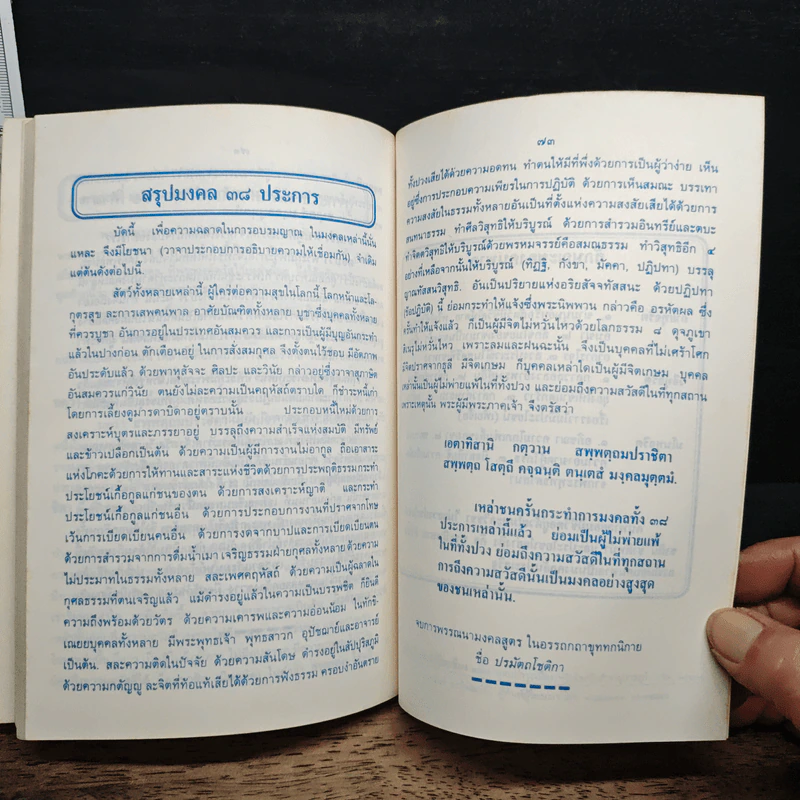 สรุปมงคล ๓๘ ประการ
บัดนี้ เพื่อความฉลาดในการอบรมญาณ ในมงคลเหล่านี้นั่น
แหละ จึงมีโยชนา (วาจาประกอบการอธิบายความให้เชื่อมกัน) จำเดิม
แต่ต้นดังต่อไปนี้.
สัตว์ทั้งหลายเหล่านี้ ผู้ใคร่ต่อความสุขในโลกนี้ โลกหน้าและโล-
กุตรสุข ละการเสพคนพาล อาศัยบัณฑิตทั้งหลาย บูชาซึ่งบุคคลทั้งหลาย
ที่ควรบูชา อันการอยู่ในประเทศอันสมควร และการเป็นผู้มีบุญอันกระทำ
แล้วในปางก่อน ตักเตือนอยู่ ในการสั่งสมกุศล จึงตั้งตนไว้ชอบ มีอัตภาพ
อันประดับแล้ว ด้วยพาหุสัจจะ ศิลปะ และวินัย กล่าวอยู่ซึ่งวาจาสุภาษิต
อันสมควรแก่วินัย ตนยังไม่ละความเป็นคฤหัสถ์ตราบใด ก็ชำระหนี้เก่า
โดยการเลี้ยงดูมารดาบิดาอยู่ตราบนั้น ประกอบหนี้ใหม่ด้วยการ
สงเคราะห์บุตรและภรรยาอยู่ บรรลุถึงความสำเร็จแห่งสมบัติ มีทรัพย์
และข้าวเปลือกเป็นต้น ด้วยความเป็นผู้มีการงานไม่อากูล ถือเอาสาระ
แห่งโภคะด้วยการให้ทานและสาระแห่งชีวิตด้วยการประพฤติธรรมกระทำ
ประโยชน์เกื้อกูลแก่ชนของตน ด้วยการสงเคราะห์ญาติ และกระทำ
ประโยชน์เกื้อกูลแก่ชนอื่น ด้วยการประกอบการงานที่ปราศจากโทษ
เว้นการเบียดเบียนคนอื่น ด้วยการงดจากบาปและการเบียดเบียนตน
ด้วยการสำรวมจากการดื่มน้ำเมา เจริญธรรมฝ่ายกุศลทั้งหลาย ด้วยความ
ไม่ประมาทในธรรมทั้งหลาย สละเพศคฤหัสถ์ ด้วยความเป็นผู้ฉลาดใน
กุศลธรรมที่ตนเจริญแล้ว แม้ดำรงอยู่แล้วในความเป็นบรรพชิต ก็ยินดี
ความถึงพร้อมด้วยวัตร ด้วยความเคารพและความอ่อนน้อม ในทักขิ-
เณยยบุคคลทั้งหลาย มีพระพุทธเจ้า พุทธสาวก อุปัชฌาย์และอาจารย์
เป็นต้น. สละความติดในปัจจัย ด้วยความสันโดษ ดำรงอยู่ในสัปปุริสภูมิ
ด้วยความกตัญญู ละจิตที่ท้อแท้เสียได้ด้วยการฟังธรรม ครอบงำอันตราย
๗๓
ทั้งปวงเสียได้ด้วยความอดทน ทำตนให้มีที่พึ่งด้วยการเป็นผู้ว่าง่าย เห็น
อยู่ซึ่งการประกอบความเพียรในการปฏิบัติ ด้วยการเห็นสมณะ บรรเทา
ความสงสัยในธรรมทั้งหลายอันเป็นที่ตั้งแห่งความสงสัยเสียได้ด้วยการ
สนทนาธรรม ทำศีลวิสุทธิให้บริบูรณ์ ด้วยการสำรวมอินทรีย์และตบะ
ทำจิตตวิสุทธิให้บริบูรณ์ด้วยพรหมจรรย์คือสมณธรรม ทำวิสุทธิอีก ๔
อย่างที่เหลือจากนั้นให้บริบูรณ์ (ทิฏฐิ, กังขา, มัคคา, ปฏิปทา) บรรลุ
ญาณทัสสนวิสุทธิ. อันเป็นปริยายแห่งอริยสัจจทัสสนะ ด้วยปฏิปทา
(ข้อปฏิบัติ) นี้ ย่อมกระทำให้แจ้งซึ่งพระนิพพาน กล่าวคือ อรหัตผล ซึ่ง
ครั้นทำให้แจ้งแล้ว ก็เป็นผู้มีจิตไม่หวั่นไหวด้วยโลกธรรม ๘ ดุจภูเขา
สิเนรุไม่หวั่นไหว เพราะลมและฝนฉะนั้น จึงเป็นบุคคลที่ไม่เศร้าโศก
มีจิตปราศจากธุลี มีจิตเกษม ก็บุคคลเหล่าใดเป็นผู้มีจิตเกษม บุคคล
เหล่านั้นเป็นผู้ไม่พ่ายแพ้ในที่ทั้งปวง และย่อมถึงความสวัสดีในที่ทุกสถาน
เพราะเหตุนั้น พระผู้มีพระภาคเจ้า จึงตรัสว่า
เอตาทิสานิ กตฺวาน สพฺพตฺถมปราชิตา
สพฺพตฺถ โสตฺถึ คจฺฉนฺติ ตนฺเตสํ มงฺคลมุตฺตมํ.
เหล่าชนครั้นกระทำการมงคลทั้ง ๓๘
ประการเหล่านี้แล้ว ย่อมเป็นผู้ไม่พ่ายแพ้
ในที่ทั้งปวง ย่อมถึงความสวัสดีในที่ทุกสถาน
การถึงความสวัสดีนั้นเป็นมงคลอย่างสูงสุด
ของชนเหล่านั้น.
จบการพรรณนามงคลสูตร ในอรรถกถาขุททกนิกาย
ชื่อ ปรมัตถโชติกา